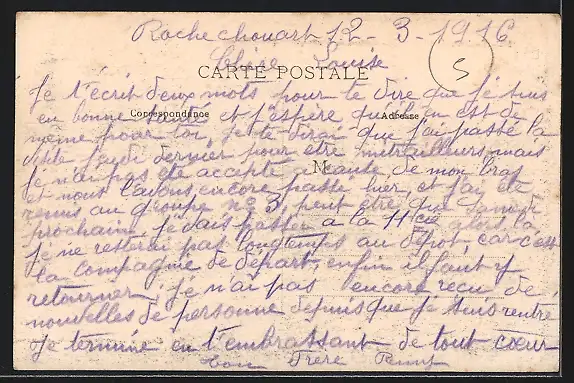 Rochechouart 12-3-1916
Chère Louise
CARTE POSTALE
Je t'écrit deux mots pour te dire que je suis
Correspondance
Adresse
en bonne santé et j'espère qu'il en est de
même pour toi, je te dirai que j'ai passé la
visite jeudi dernier pour être mitrailleurs mais
M
je n'ai pas été accepté a cause de mon bras
et nous l'avons encore passé hier, et j'ai été
remis au groupe no 3, peut être que Samedi
prochain, je vais passer a la 11 cie alors là
je ne resterai pas longtemps au dépot, car c'est
la compagnie de départ, enfin il faut y
retourner, je n'ai pas encore recu de
nouvelles de personne depuis que je suis rentré
Je termine en t'embrassant de tout cœur
ton Frère
S